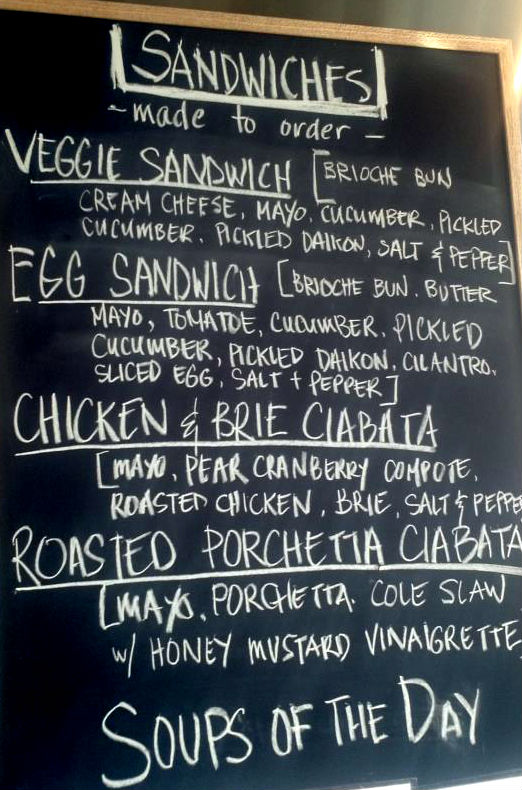 SANDWICHES
- made to order -
VEGGIE SANDWICH [BRIOCHE BUN
CREAM CHEESE, MAYO, CUCUMBER, PICKLED
CUCUMBER. PICKLED DAIKON, SALT & PEPPER]
EGG SANDWICH [BRIOCHE BUN. BUTTER
MAYO, TOMATOE, CUCUMBER. PICKLED
CUCUMBER, PICKLED DAIKON, CILANTRO.
SLICED EGG, SALT + PEPPER]
CHICKEN & BRIE CIABATA
[MAYO, PEAR CRANBERRY COMPOTE,
ROASTED CHICKEN, BRIE, SALT & PEPPE
ROASTED PORCHETTA CIABATA
[MAYO, PORCHETTA. COLE SLAW
w/ HONEY MUSTARD VINAIGRETTE]
SOUPS OF THE DAY